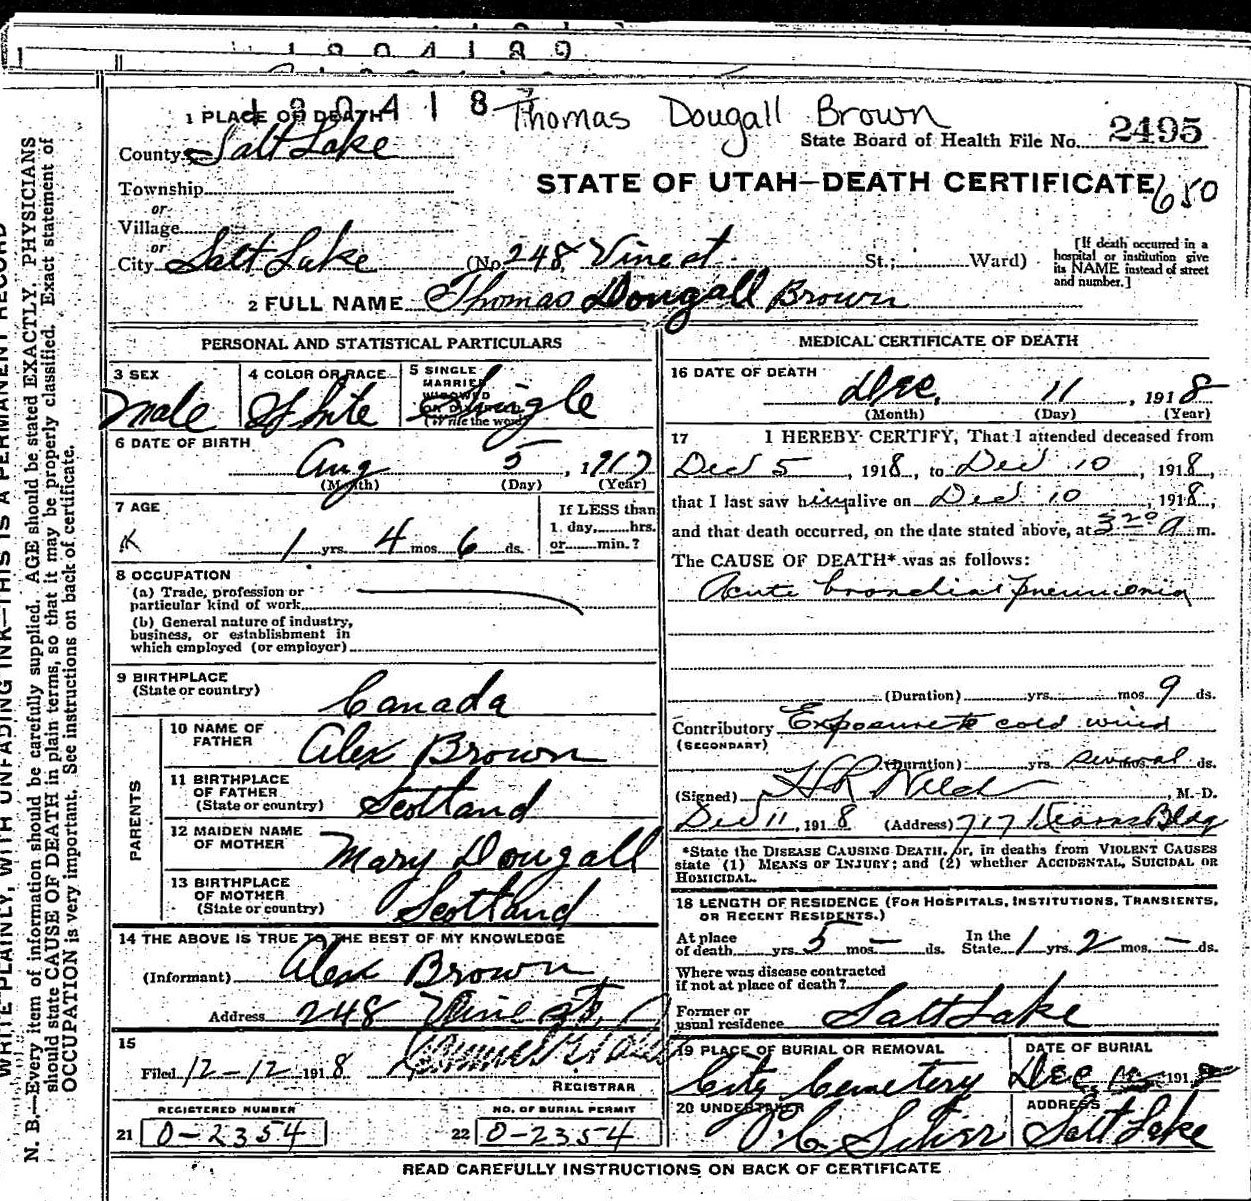 1904189
190418
Thomas Dougall Brown
1 PLACE OF DEATH
State Board of Health File No. 2495
County Salt Lake
STATE OF UTAH—DEATH CERTIFICATE 650
Township
or
Village
or
City Salt Lake (No. 248 Vine st St.; Ward)
[If death occurred in a hospital or institution give its NAME instead of street and number.]
2 FULL NAME Thomas Dougall Brown
PERSONAL AND STATISTICAL PARTICULARS
3 SEX
Male
4 COLOR OR RACE
White
5 SINGLE
MARRIED
WIDOWED
OR DIVORCED
(Write the word)
Single
6 DATE OF BIRTH
Aug 5, 1917
(Month) (Day) (Year)
7 AGE
1 yrs. 4 mos. 6 ds.
If LESS than
1 day, hrs.
or min.?
8 OCCUPATION
(a) Trade, profession or
particular kind of work
(b) General nature of industry,
business, or establishment in
which employed (or employer)
9 BIRTHPLACE
(State or country)
Canada
PARENTS
10 NAME OF
FATHER
Alex Brown
11 BIRTHPLACE
OF FATHER
(State or country)
Scotland
12 MAIDEN NAME
OF MOTHER
Mary Dougall
13 BIRTHPLACE
OF MOTHER
(State or country)
Scotland
14 THE ABOVE IS TRUE TO THE BEST OF MY KNOWLEDGE
(Informant) Alex Brown
Address 248 Vine st.
15
Filed 12-12 1918
REGISTRAR
REGISTERED NUMBER
21 0-2354
NO. OF BURIAL PERMIT
22 0-2354
MEDICAL CERTIFICATE OF DEATH
16 DATE OF DEATH
Dec. 11, 1918
(Month) (Day) (Year)
17 I HEREBY CERTIFY, That I attended deceased from
Dec 5, 1918, to Dec 10, 1918,
that I last saw him alive on Dec 10, 1918,
and that death occurred, on the date stated above, at 3 20 a m.
The CAUSE OF DEATH* was as follows:
Acute bronchial pneumonia
(Duration) yrs. mos. 9 ds.
Contributory Exposure to cold wind
(SECONDARY)
(Duration) yrs. several mos. ds.
(Signed) H R Welch, M. D.
Dec 11, 1918 (Address) 717 Kearns Bldg
*State the DISEASE CAUSING DEATH, or, in deaths from VIOLENT CAUSES
state (1) MEANS OF INJURY; and (2) whether ACCIDENTAL, SUICIDAL OR
HOMICIDAL.
18 LENGTH OF RESIDENCE (FOR HOSPITALS, INSTITUTIONS, TRANSIENTS,
OR RECENT RESIDENTS.)
At place
of death yrs. 5 mos. — ds.
In the
State 1 yrs. 2 mos. — ds.
Where was disease contracted
if not at place of death?
Former or
usual residence Salt Lake
19 PLACE OF BURIAL OR REMOVAL
City Cemetery
DATE OF BURIAL
Dec. 191
20 UNDERTAKER
ADDRESS
Salt Lake
READ CAREFULLY INSTRUCTIONS ON BACK OF CERTIFICATE
WRITE PLAINLY, WITH UNFADING INK—THIS IS A PERMANENT RECORD
N. B.—Every item of information should be carefully supplied. AGE should be stated EXACTLY. PHYSICIANS
should state CAUSE OF DEATH in plain terms, so that it may be properly classified. Exact statement of
OCCUPATION is very important. See instructions on back of certificate.